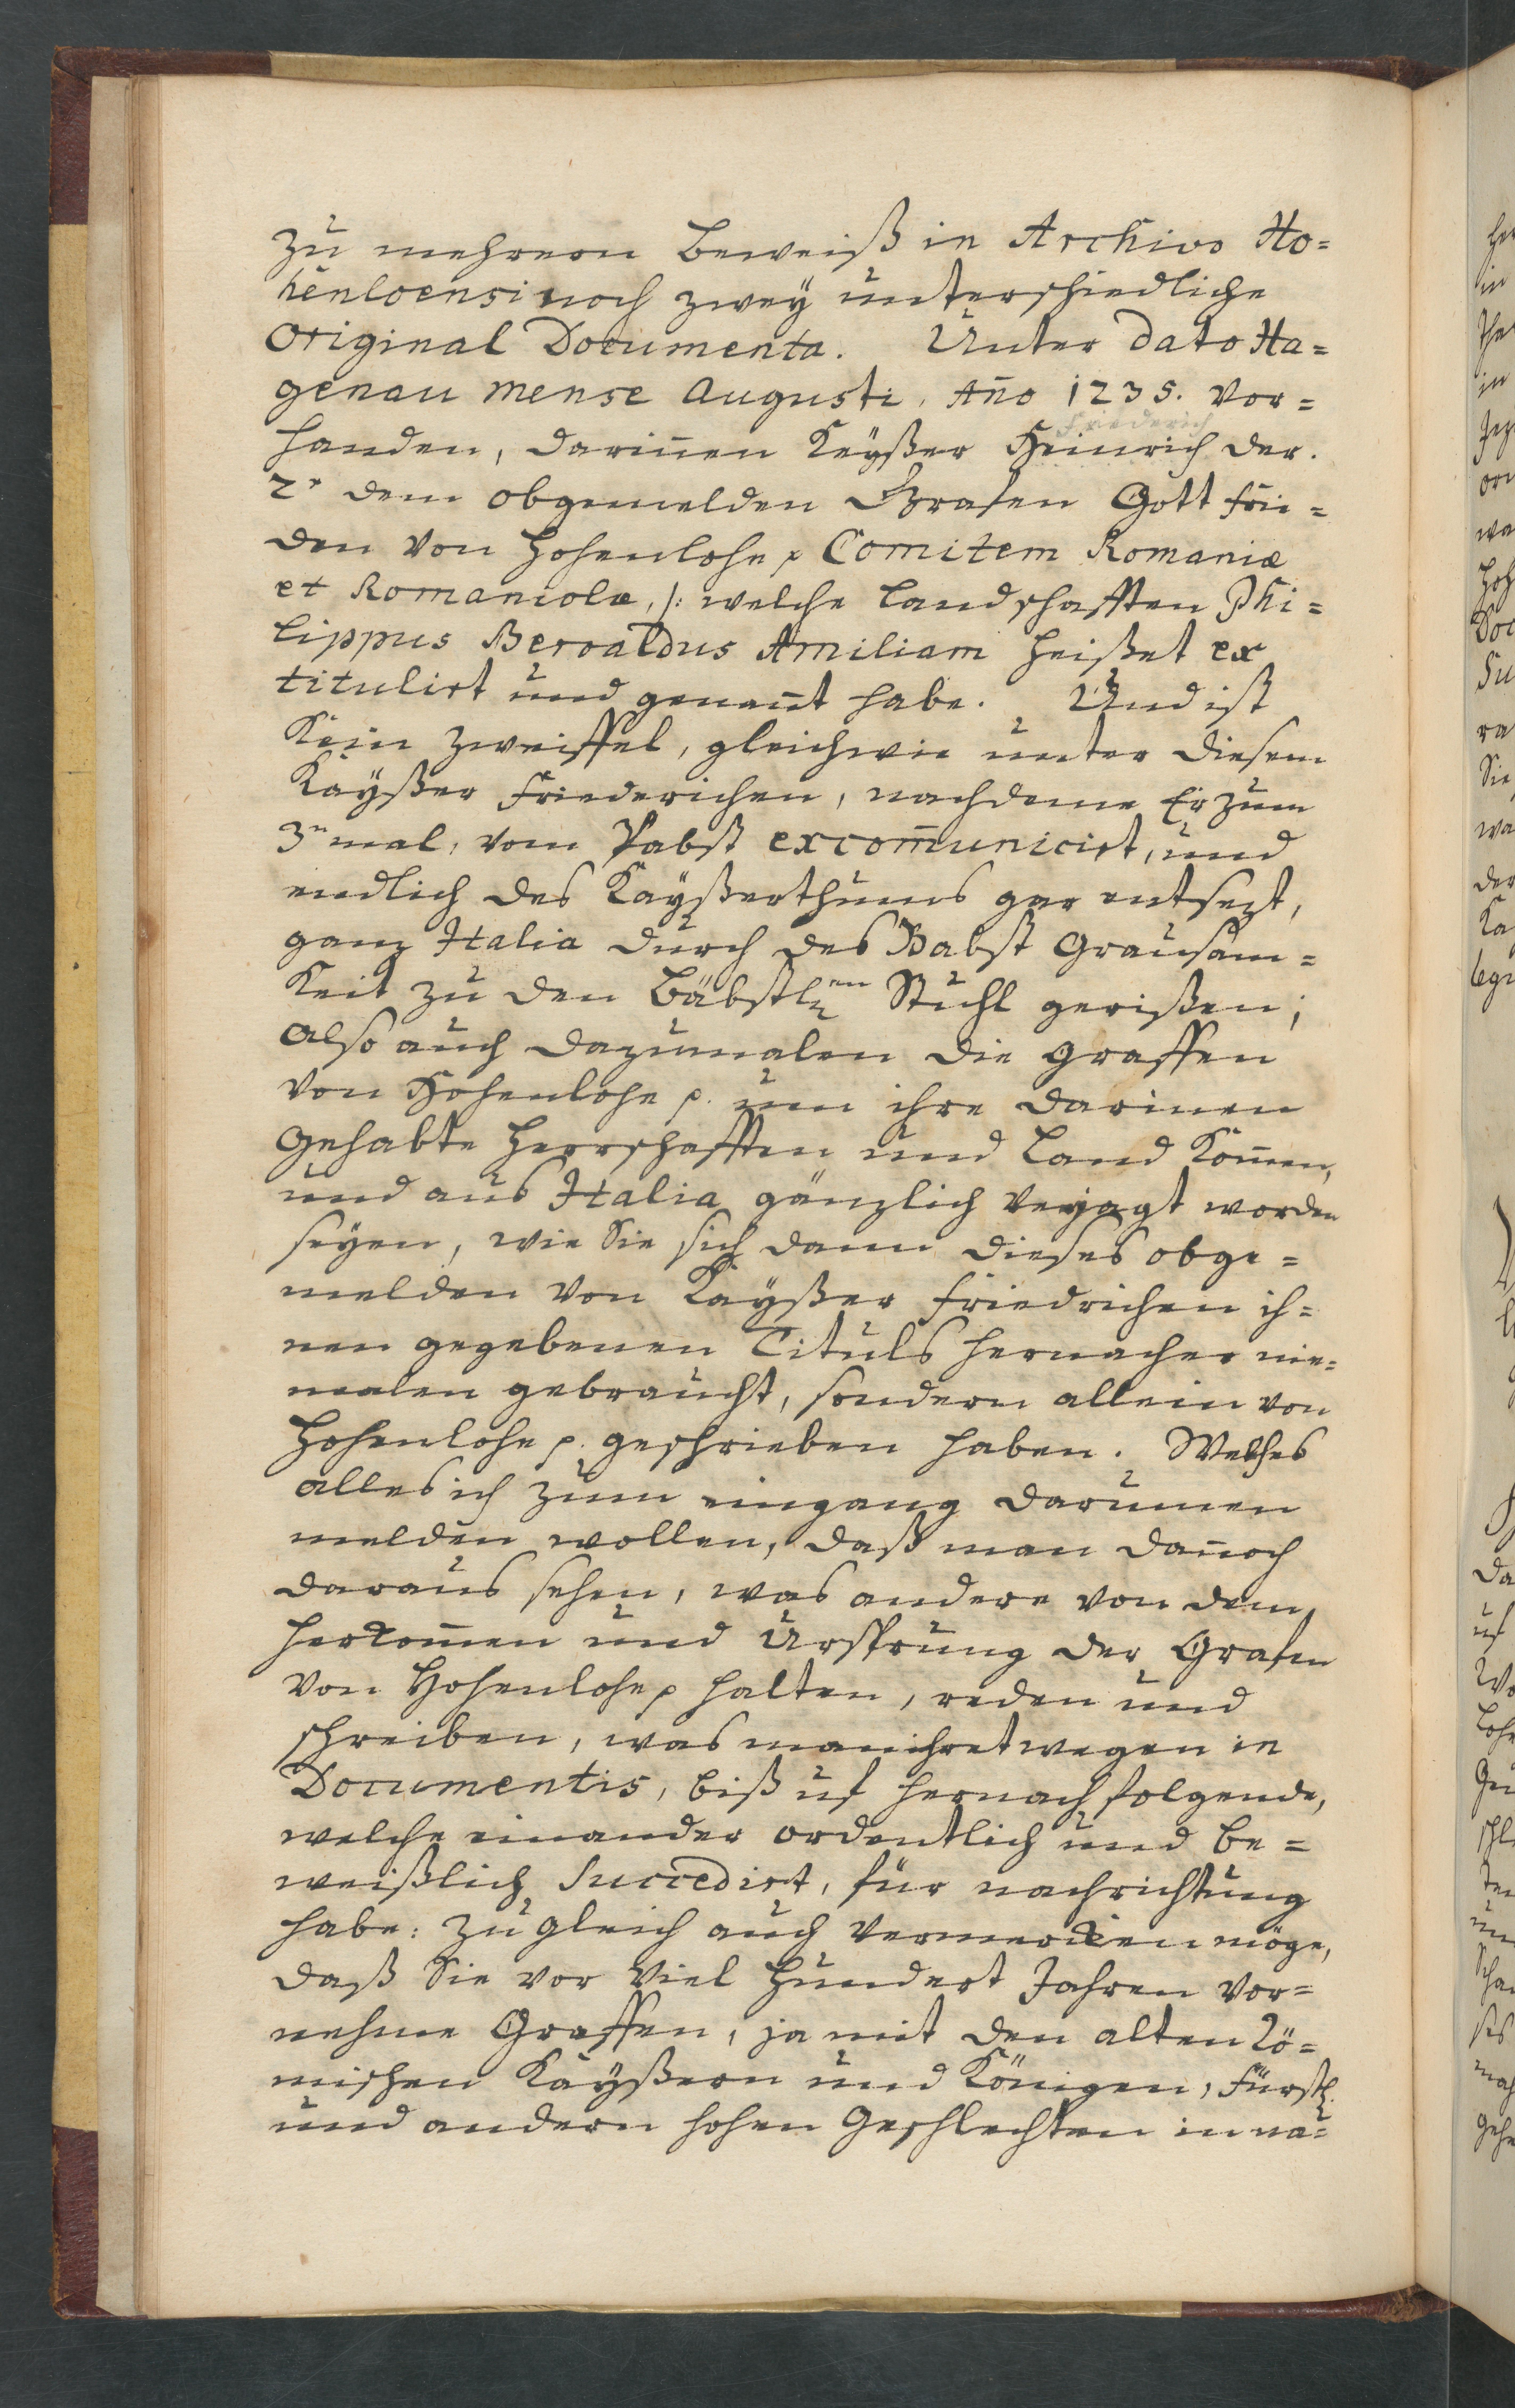 zu mehrern Beweiß in Archivo Ho=
henloensi noch zweÿ unterschiedliche
Original Documenta. Unter dato Ha=
genau mense Augusti, Año 1235. vor=
Friederich
handen, dariñen Keÿßer Heinrich der.
2r dem obgemelden Grafen Gott frie=
den von Hohenlohe p Comitem Romaniæ
et Romaniolæ, /: welche Landschafften Phi=
lippus Beroaldus Amiliam heißet ex
titulirt und geneñt habe. Und ist
Kein Zweiffel, gleichwie unter diesem
Kaÿßer Friederichen, nachdeme Er zum
3n mal, vom Pabst excom̃unicirt, und
endlich des Kaÿßerthums gar entsezt,
ganz Italia durch des Babst Grausam=
Keit zu den Bäbstlen Stuhl gerißen;
also auch dazumalen die Graffen
von Hohenlohe p. umn ihre darinen
Gehabte Herrschafften und Land Kom̃en,
und aus Italia gänzlich verjagt worden
seÿen, wie Sie sich dann dieses obge=
melden von Kaÿßer Friedrichen ih=
nen gegebenen Tituls hernacher nie=
malen gebraucht, sondern allein von
Hohenlohe p. geschrieben haben. Welches
alles ich zum eingang darummen
melden wollen, daß man dañoch
daraus sehen, was andere von dem
herkom̃en und Ursprung der Grafen
von Hohenlohe p halten, reden und
schreiben, was man ihretwegen in
Documentis, biß uf hernach folgende,
welche einander ordentlich und be=
weißlich Succedirt, für nachrichtung
habe: zu gleich auch vermercken möge,
daß Sie vor viel hundert Jahren vor=
nehme Graffen, ja mit den alten Rö=
mischen Kaÿßern und Königen, Fürstl.
und andern hohen Geschlechten in na=